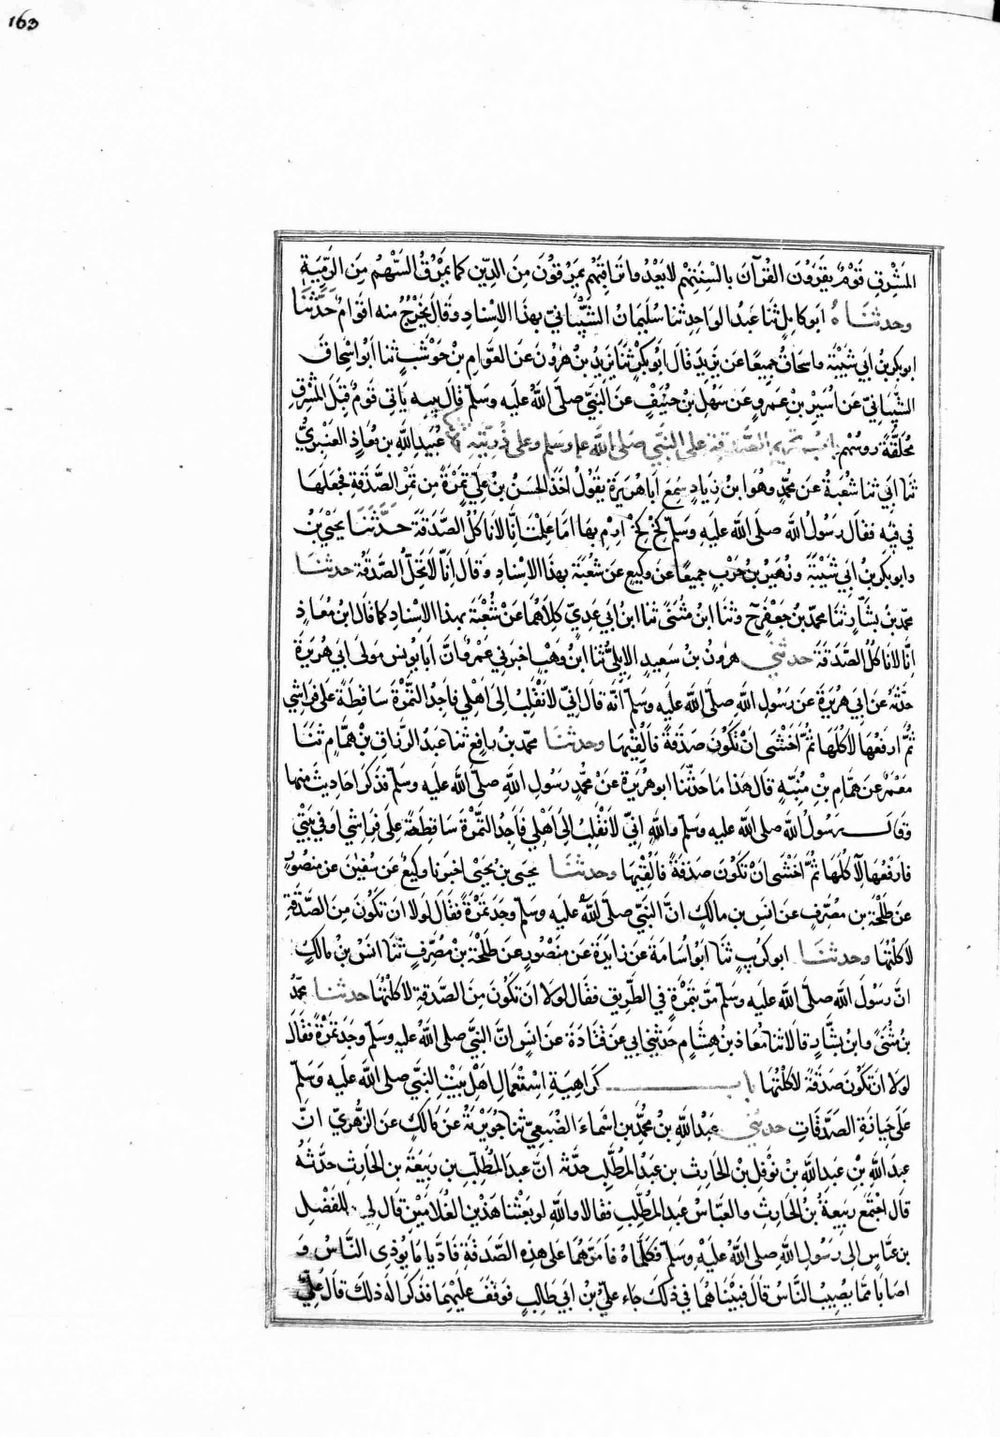 163
المَشْرِقِ قَوْمٌ يَقْرَؤنَ القُرْآنَ بالسِنَتِهِمْ لا يَعْدُوا تَرَاقِيَهُم يَمرقُوْنَ مِنَ الدِّينِ كما يَمْرُقُ السَّهْمُ مِنَ الرَّمِيَّةِ
وحدثنَا هُ ابو كامِلٍ ثَنا عَبدُ الواحِدِ ثنا سُلَيمَانُ الشَّيْبانيّ بِهذا الاِسْنادِ وَقالَ يَخْرُجُ مِنه اقوَامٌ حَدَّثَنَا
ابو بكرِ بنُ ابي شَيْبَةَ واسحَاقُ جَمِيعًا عَن يَزِيدَ قالَ ابُو بَكْرٍ ثَنا يَزِيدُ بنُ هٰرُونَ عَنِ العَوَّامِ بْنِ حَوْشَبٍ ثنا ابُو اسْحاقَ
الشَّيْبَانِيّ عَن اُسَيْرِ بْنِ عَمرٍو عَن سَهْلِ بْنِ حُنَيْفٍ عَنِ النَّبِيّ صلّى اللّٰهُ عليه وسلّم قالَ يَتِيهُ يَاتِي قَومٌ قِبَلَ المَشْرِقِ
مُحَلَّقَةٌ رؤسُهُمْ باب تحريم الصَّدقة على النَّبي صلى اللّٰه عليه وسلم وعلى ذُرّيّتِه عُبَيدُ اللّٰهِ بنُ مُعَاذٍ العَنْبَرِيُّ
ثَنا ابِي ثنا شُعْبَةُ عَن مُحَمّدٍ وهُوَ ابنُ زِيَادٍ سَمِعَ ابا هُرَيرَةَ يَقُولُ اخَذَ الحَسَنُ بنُ عَلِيٍّ تَمْرَةً مِن تَمْرِ الصَّدَقَةِ فجَعَلَهَا
فِي فِيْهِ فقالَ رَسُولُ اللّٰه صلّى اللّٰه عليه وسلّم كِخْ كِخْ اِرْمِ بِها امَا عَلِمْتَ انَّا لَا نَاكُلُ الصَّدَقَةَ حَدَّثَنَا يَحْيَى بنُ
وابو بكرِ بنُ ابي شَيْبَةَ وزُهَيرُ بنُ حَرْبٍ جميعًا عَن وَكِيعٍ عَن شُعْبَةَ بِهذا الاِسْنادِ وَقالَ انّا لَا تَحِلُّ الصَّدَقَةُ حدثنَا
محمّدُ بنُ بَشَّارٍ ثَنا محمّدُ بنُ جَعْفَرٍ ح وَثَنا ابنُ مُثَنّى ثنا ابنُ ابي عَدِيّ كِلَاهُمَا عَن شُعْبَةَ بهذا الاِسْنادِ كما قالَ ابنُ مُعَاذٍ
انَّا لا نَاكُلُ الصَّدَقَةَ حدثني هٰرُونُ بنُ سَعِيدٍ الاَيْلِيُّ ثَنا ابنُ وَهْبٍ اخبَرَنِي عَمْرٌو انَّ ابَا يُونُسَ مَولَى ابي هُرَيرَةَ
حَدّثَهُ عَن ابِي هُرَيرَةَ عَن رَسُولِ اللّٰهِ صلَّى اللّٰه عليه وسلّم انَّهُ قالَ اِنّي لَاَنْقَلِبُ اِلى اَهْلِي فاَجِدُ التَّمْرَةَ سَاقِطَةً عَلى فِرَاشِي
ثُمَّ ارفَعُهَا لِاٰكُلَهَا ثمَّ اَخْشَى ان تَكُونَ صَدَقَةً فَاُلْقِيْهَا وحدثنَا محمّدُ بنُ رَافِعٍ ثنا عَبدُ الرَّزَاقِ بْنُ هَمَّامٍ ثَنَا
مَعْمَرٌ عَن هَمَّامِ بْنِ مُنَبِّهٍ قالَ هٰذا مَا حَدَّثَنا ابو هُرَيرَةَ عَن مُحمّدٍ رَسُولِ اللّٰهِ صلّى اللّٰه عليه وسلّم فَذكرَ احَادِيثَ مِنها
وَقالَ رَسُولُ اللّٰه صلى اللّٰه عليه وسلّم واللّٰهِ اِنّي لَاَنْقَلِبُ اِلى اَهْلِي فَاَجِدُ التَّمْرَةَ سَاقِطَةً عَلى فِرَاشي او في بَيْتِي
فارْفَعُهَا لِاٰكُلَهَا ثمَّ اَخْشَى انْ تَكُونَ صَدَقَةً فَاُلْقِيْهَا وحدثنَا يحيَى بنُ يَحْيَى اخبَرنا وكيعٌ عَن سُفْيٰنَ عَن منصُورٍ
عَن طَلْحَةَ بنِ مُصَرِّفٍ عَن اَنَسِ بنِ مالكٍ انَّ النَّبيّ صلَّى اللّٰهُ عليه وسلّم وَجَدَ تَمْرَةً فَقالَ لَولا ان تَكُونَ مِنَ الصَّدَقَةِ
لَاَكَلْتُهَا وحدثنَا ابو كُرَيْبٍ ثَنَا ابُو اُسَامَةَ عَن زايدَةَ عَن مَنْصُورٍ عَن طَلْحَةَ بنِ مُصَرِّفٍ ثَنا انَسُ بْنُ مالكٍ
انَّ رَسُولَ اللّٰه صلّى اللّٰه عليه وسلّم مَرَّ بِتَمْرَةٍ فِي الطَّرِيقِ فقالَ لولا ان تَكُونَ مِنَ الصّدَقَةِ لَاَكَلْتُهَا حدثنا محمّدُ
بنُ مُثَنَّى وابنُ بَشَّارٍ قالَا ثنا مُعَاذُ بنُ هِشَامٍ حَدّثنِي ابي عَن قَتَادَةَ عَن انَسٍ انَّ النَّبيَّ صلى اللّٰهُ عليه وسلّم وَجَدَ تَمْرَةً فَقَالَ
لولا ان تَكُونَ صَدَقَةً لَاَكَلْتُهَا باب كَرَاهِيَةِ اِسْتِعْمَالِ اهْلِ بَيْتِ النَّبيّ صلى اللّٰه عليه وسلّم
عَلى خِيانَةِ الصَّدَقَاتِ حدثني عَبْدُ اللّٰهِ بنُ مُحمَّدِ بنِ اسْمَاءَ الضُّبَعِيّ ثنا جُوَيْرِيَةُ عَن مَالكٍ عَن الزُّهْرِيّ انَّ
عبدَ اللّٰهِ بْنَ عَبدِ اللّٰهِ بْنِ نَوفَلِ بنِ الحَارِثِ بن عَبدِ المُطّلِبِ حدَّثَه انَّ عبدَ المُطَّلِبِ بن رَبِيعَةَ بن الحَارِثِ حدَّثَهُ
قالَ اجْتَمَعَ رَبِيعَةُ بنُ الحَارِثِ والعَبَّاسُ عَبدِ المُطَّلِبِ فقالا واللّٰهِ لو بَعَثْنا هٰذَيْنِ الغُلَامَيْنِ قالَ لِي وللفَضْلِ
بنِ عبّاسٍ اِلى رَسُولِ اللّٰهِ صلى اللّٰهُ عليهِ وسلّم فكَلَّمَاهُ فاَمَّرَهُمَا عَلى هذِهِ الصَّدَقةِ فَادَّيا مَا يُؤدِي النَّاسُ وَ
اصَابَا ممّا يُصِيبُ النَّاسُ قالَ فبَيْنَاهُما فِي ذٰلكَ جَاءَ عَليُّ بنُ ابي طَالِبٍ فَوَقَفَ عَلَيْهِمَا فذكَرا لَهُ ذلكَ قالَ عَلِيٌّ